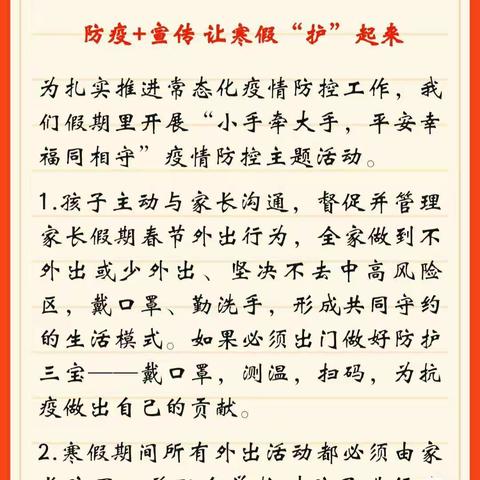 防疫+宣传 让寒假“护”起来
为扎实推进常态化疫情防控工作，我
们假期里开展“小手牵大手，平安幸
福同相守”疫情防控主题活动。
1.孩子主动与家长沟通，督促并管理
家长假期春节外出行为，全家做到不
外出或少外出、坚决不去中高风险
区，戴口罩、勤洗手，形成共同守约
的生活模式。如果必须出门做好防护
三宝——戴口罩，测温，扫码，为抗
疫做出自己的贡献。
2.寒假期间所有外出活动都必须由家